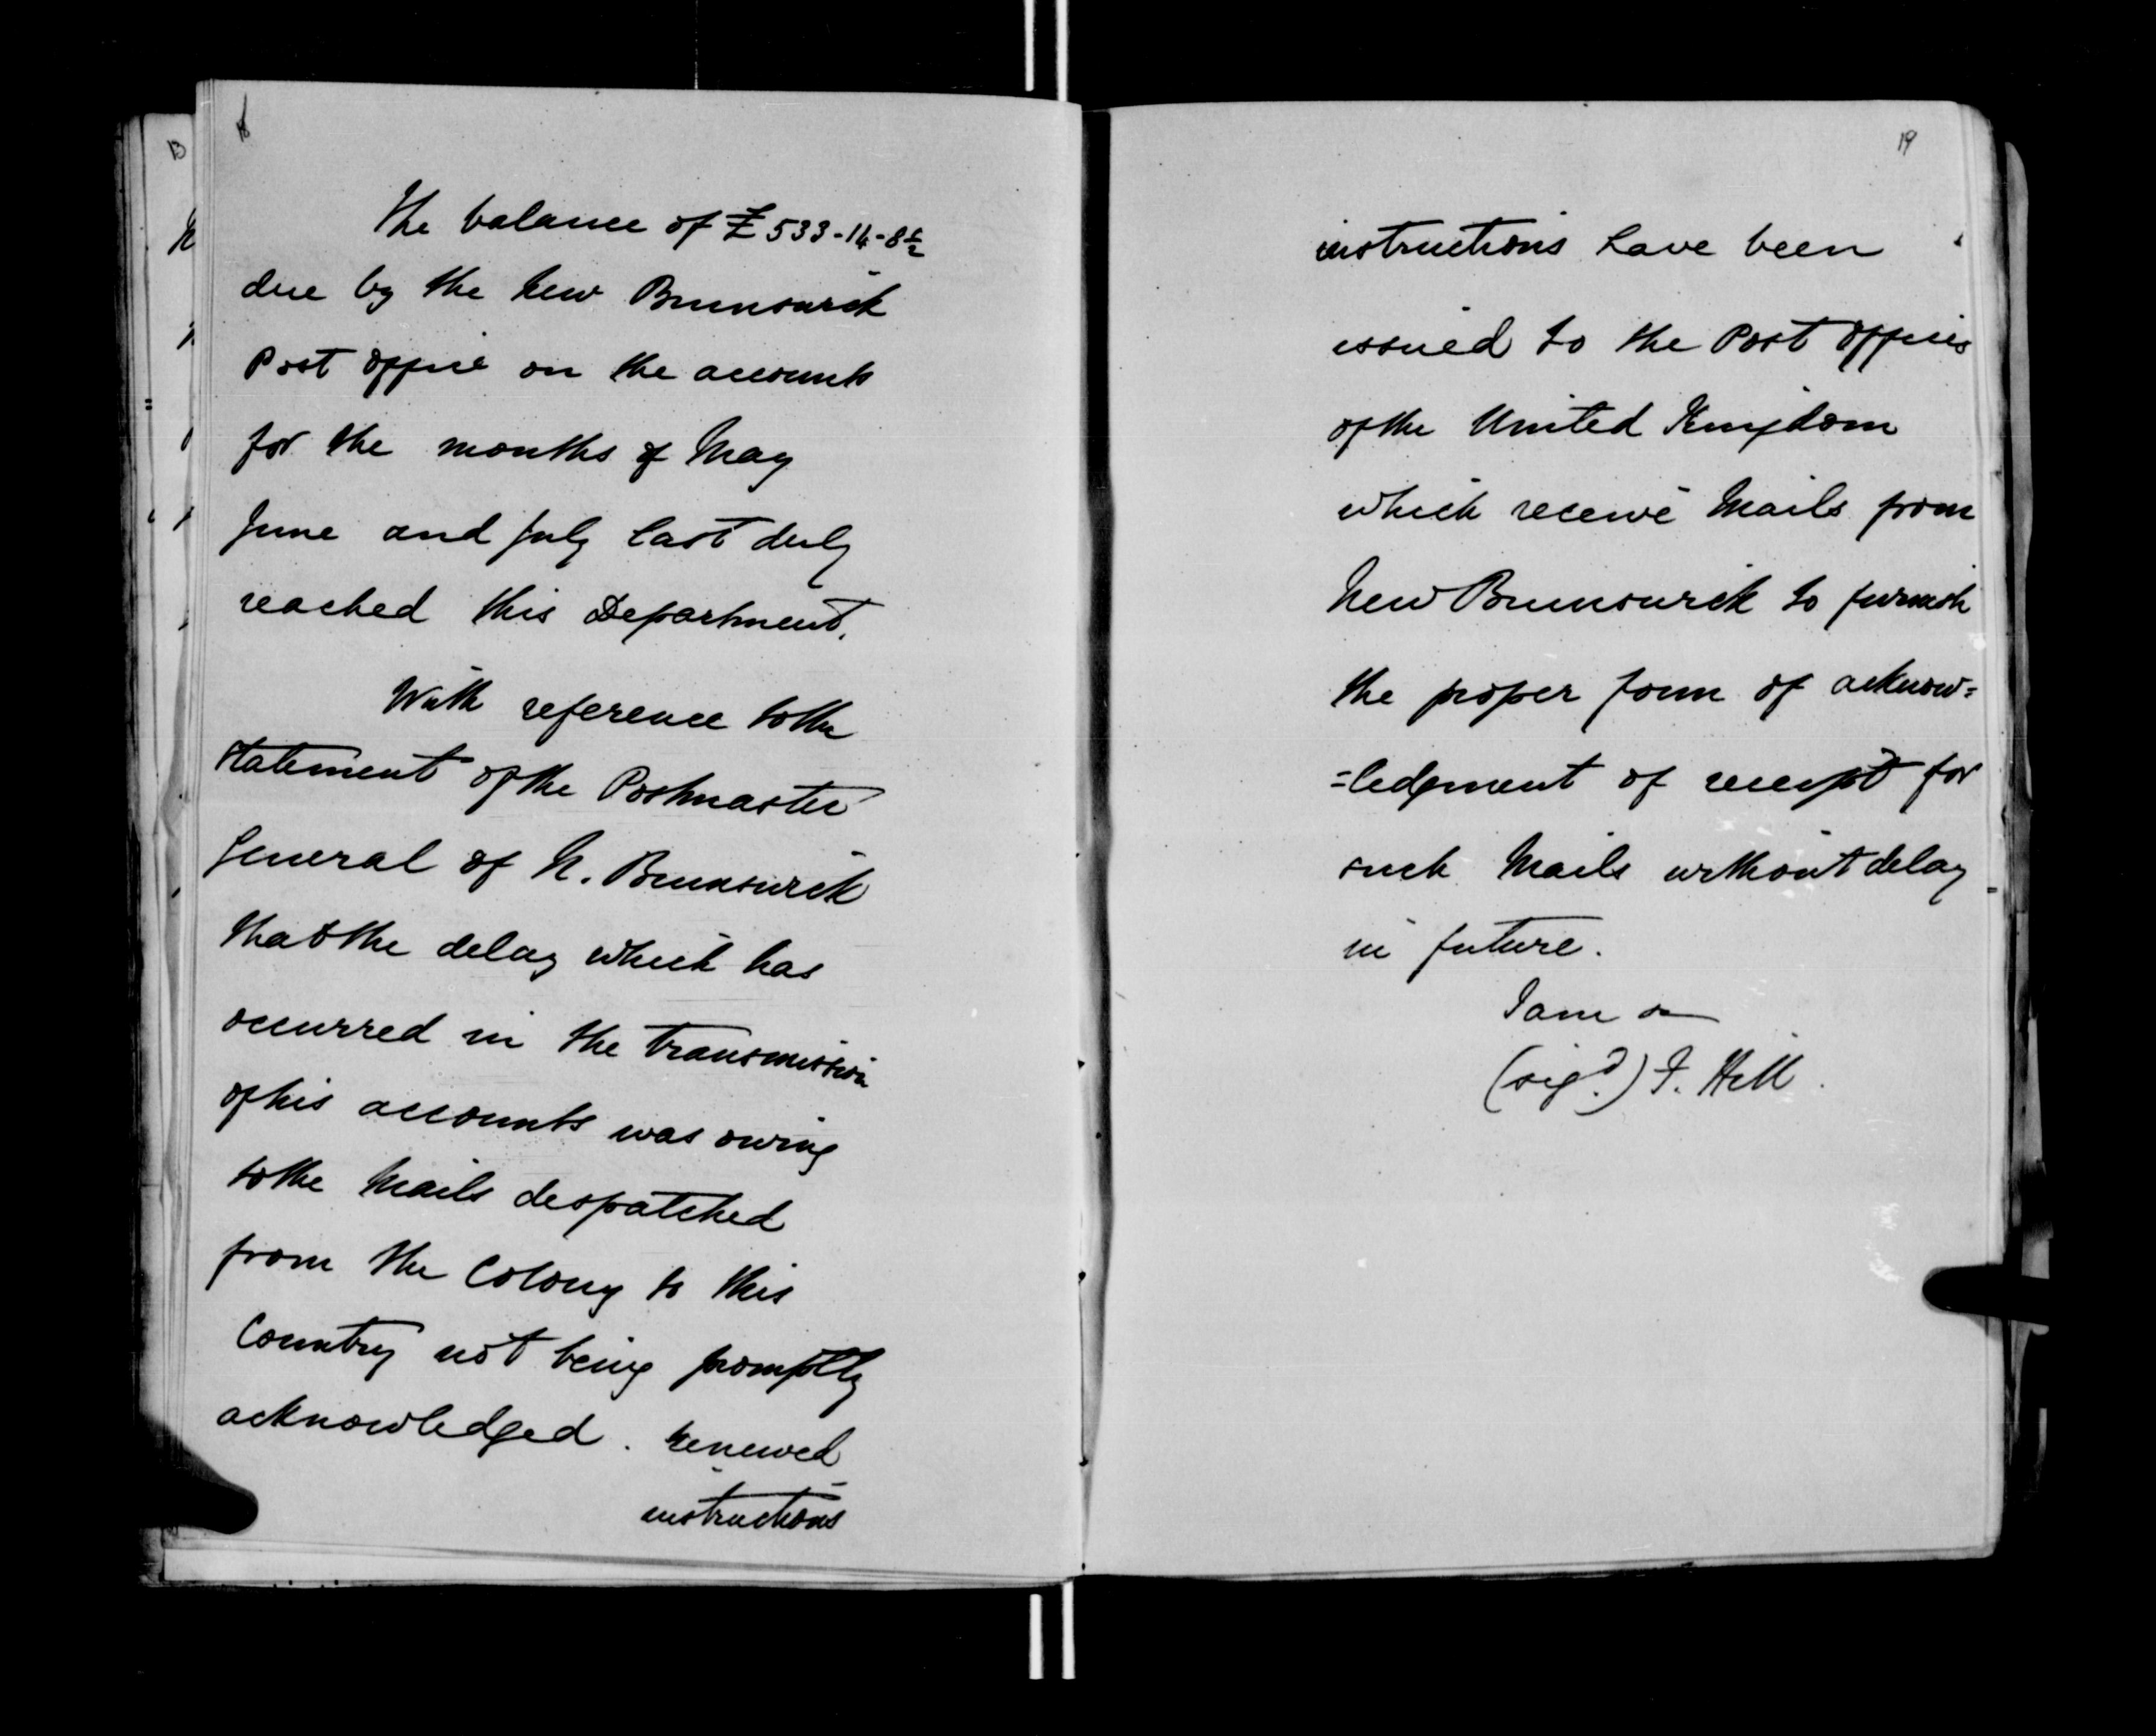 18
The balance of £533-14-8½
due by the New Brunswick
Post Office on the accounts
for the months of May
June and July last duly
reached this Department.
With reference to the
statement of the Postmaster
General of N. Brunswick
that the delay which has
occurred in the transmission
of his accounts was owing
to the Mails despatched
from the Colony to this
Country not being promptly
acknowledged. renewed
instructions
19
instructions have been
issued to the Post Offices
of the United Kingdom
which receive Mails from
New Brunswick to furnish
the proper form of acknow=
=ledgment of receipt for
such Mails without delay
in future.
I am
(sigd.) F. Hill.